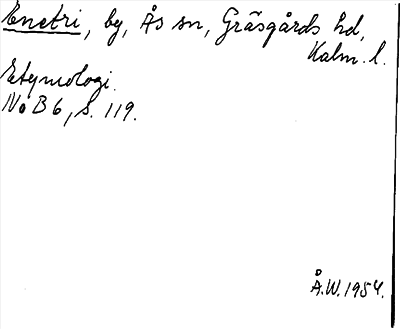 Enetri, by, Ås sn, Gräsgårds hd,
Kalm. l.
Etymologi.
NoB 6, s. 119.
Å.W. 1954.